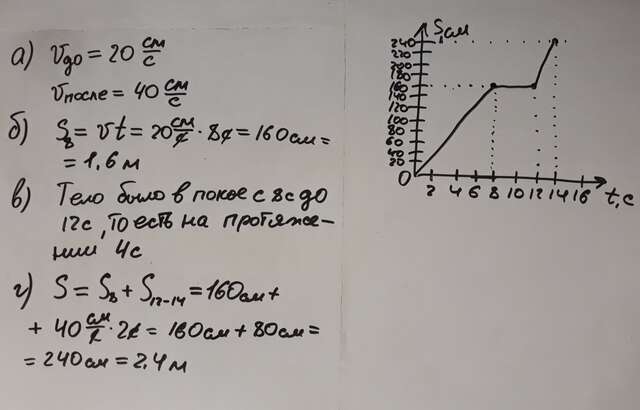 а) vдо = 20 см/с
vпосле = 40 см/с
б) S8 = vt = 20 см/с · 8с = 160см =
= 1,6 м
в) Тело было в покое с 8с до
12с, то есть на протяже-
нии 4с
г) S = S8 + S12-14 = 160см +
+ 40 см/с · 2с = 160см + 80см =
= 240см = 2,4 м
S, см
240
220
200
180
160
140
120
100
80
60
40
20
0
2 4 6 8 10 12 14 16 t, с